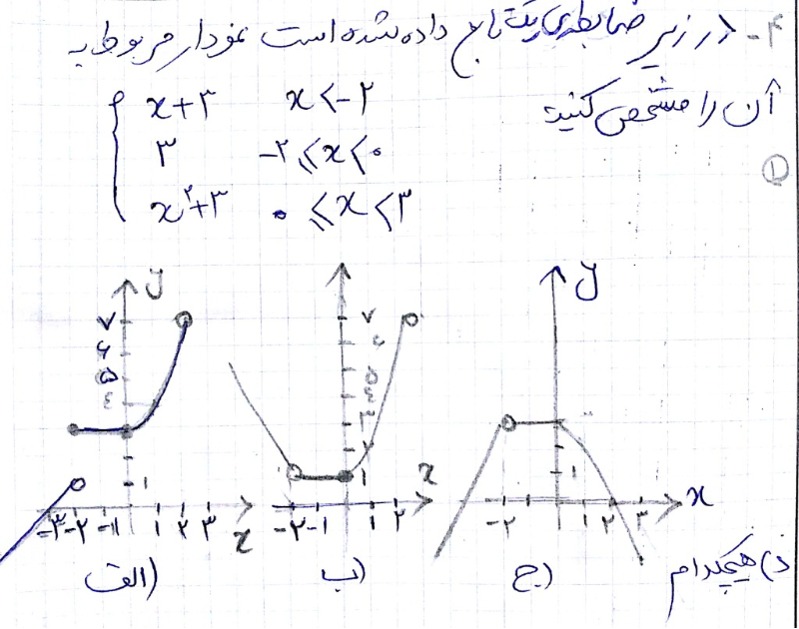 ۴- در زیر ضابطه‌ی یک تابع داده شده است نمودار مربوط به
آن را مشخص کنید
①
x+۳ x<-۲
۳ -۲≤x<۰
x²+۳ ۰≤x<۳
y
۷
۶
۵
۴
۱
-۳ -۲ -۱ ۱ ۲ ۳
x
الف)
۷
۶
۵
۴
۳
۲
۱
-۲ -۱ ۱ ۲
x
ب)
y
۱
-۲ ۱ ۲ ۳
x
ج)
د) هیچکدام